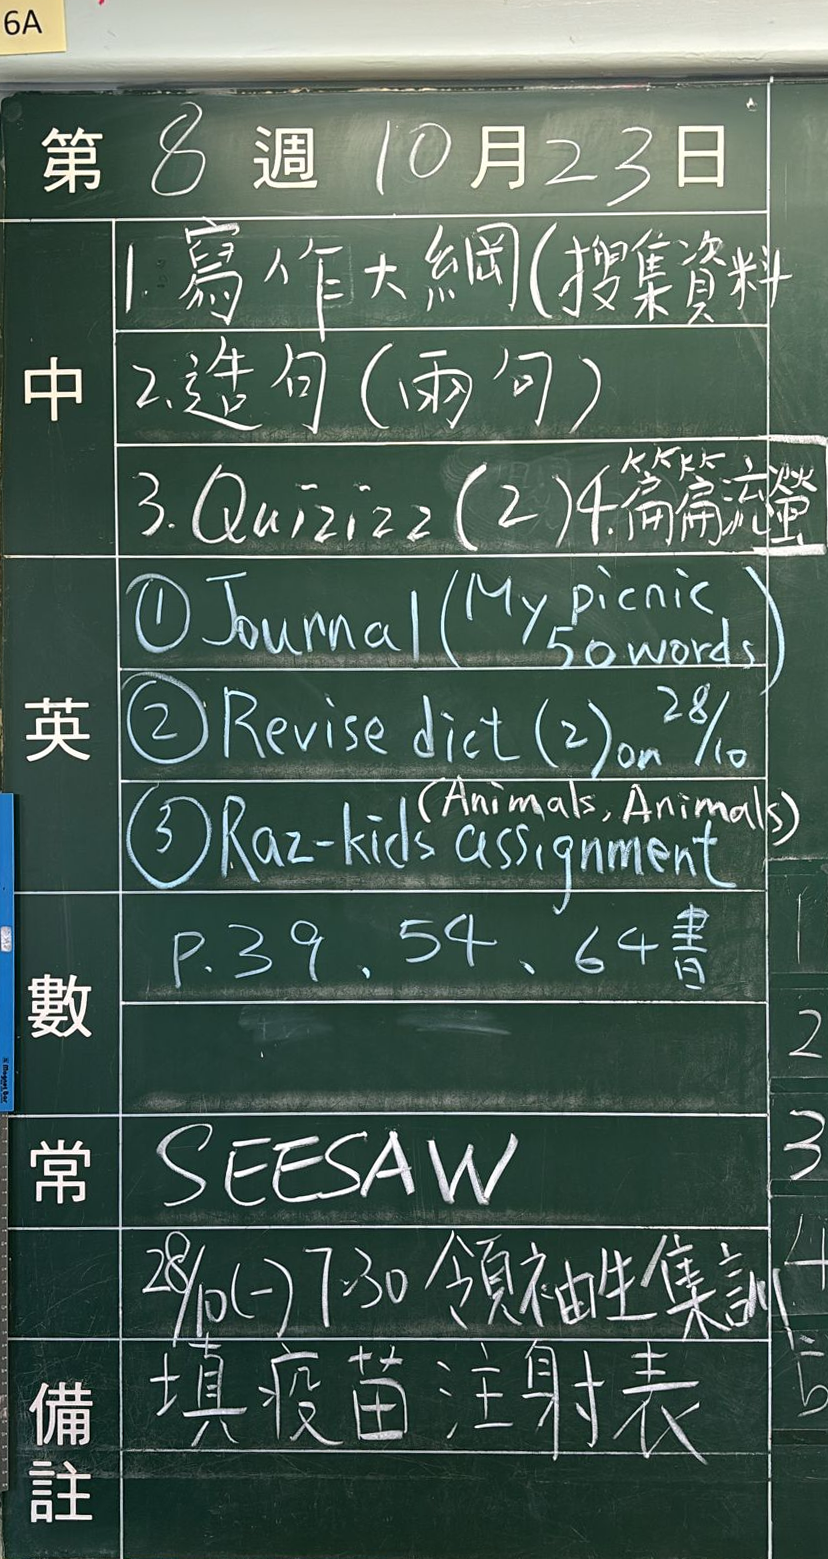 6A
第 8 週 10 月 23 日
中
1. 寫作大綱(搜集資料
2. 造句(兩句)
3. Quizizz (2) 4. 篇篇流螢
英
① Journal (My picnic
50 words)
② Revise dict (2) on 28/10
(Animals, Animals)
③ Raz-kids assignment
數
P.39、54、64書
常
SEESAW
28/10(一) 7:30 領袖生集訓
備註
填疫苗注射表
1
2
3
4
5